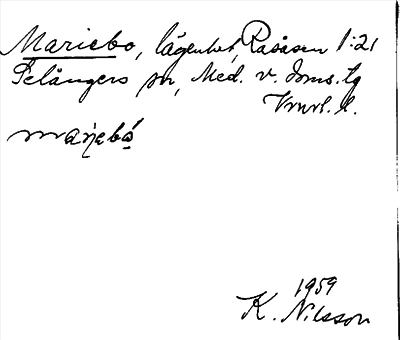 Mariebo, lägenhet, Rasåsen 1:21
Selångers sn, Med. v. doms. tg
Vnrl. l.
marjebo
1959
K. Nilsson